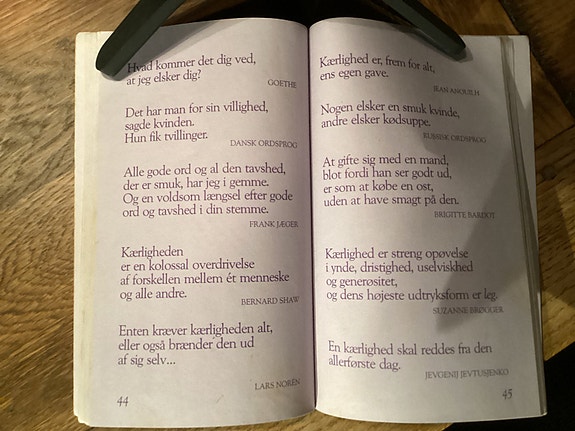 Hvad kommer det dig ved,
at jeg elsker dig?
GOETHE
Det har man for sin villighed,
sagde kvinden.
Hun fik tvillinger.
DANSK ORDSPROG
Alle gode ord og al den tavshed,
der er smuk, har jeg i gemme.
Og en voldsom længsel efter gode
ord og tavshed i din stemme.
FRANK JÆGER
Kærligheden
er en kolossal overdrivelse
af forskellen mellem ét menneske
og alle andre.
BERNARD SHAW
Enten kræver kærligheden alt,
eller også brænder den ud
af sig selv...
LARS NORÉN
44
Kærlighed er, frem for alt,
ens egen gave.
JEAN ANOUILH
Nogen elsker en smuk kvinde,
andre elsker kødsuppe.
RUSSISK ORDSPROG
At gifte sig med en mand,
blot fordi han ser godt ud,
er som at købe en ost,
uden at have smagt på den.
BRIGITTE BARDOT
Kærlighed er streng opøvelse
i ynde, dristighed, uselviskhed
og generøsitet,
og dens højeste udtryksform er leg.
SUZANNE BRØGGER
En kærlighed skal reddes fra den
allerførste dag.
JEVGENIJ JEVTUSJENKO
45